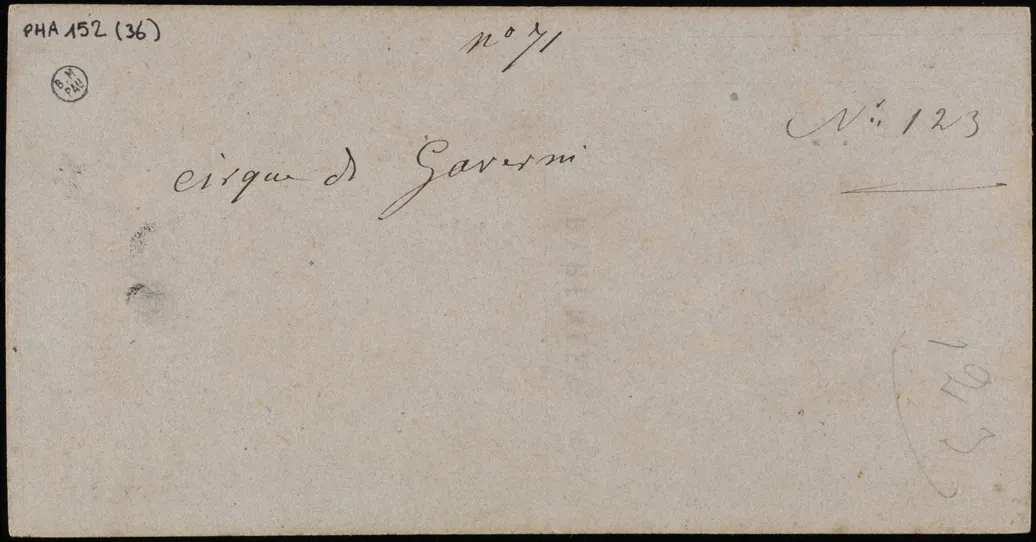 PHA 152 (36)
n° 71
B.M
PAU
N° 123
cirque de Gaverni
123